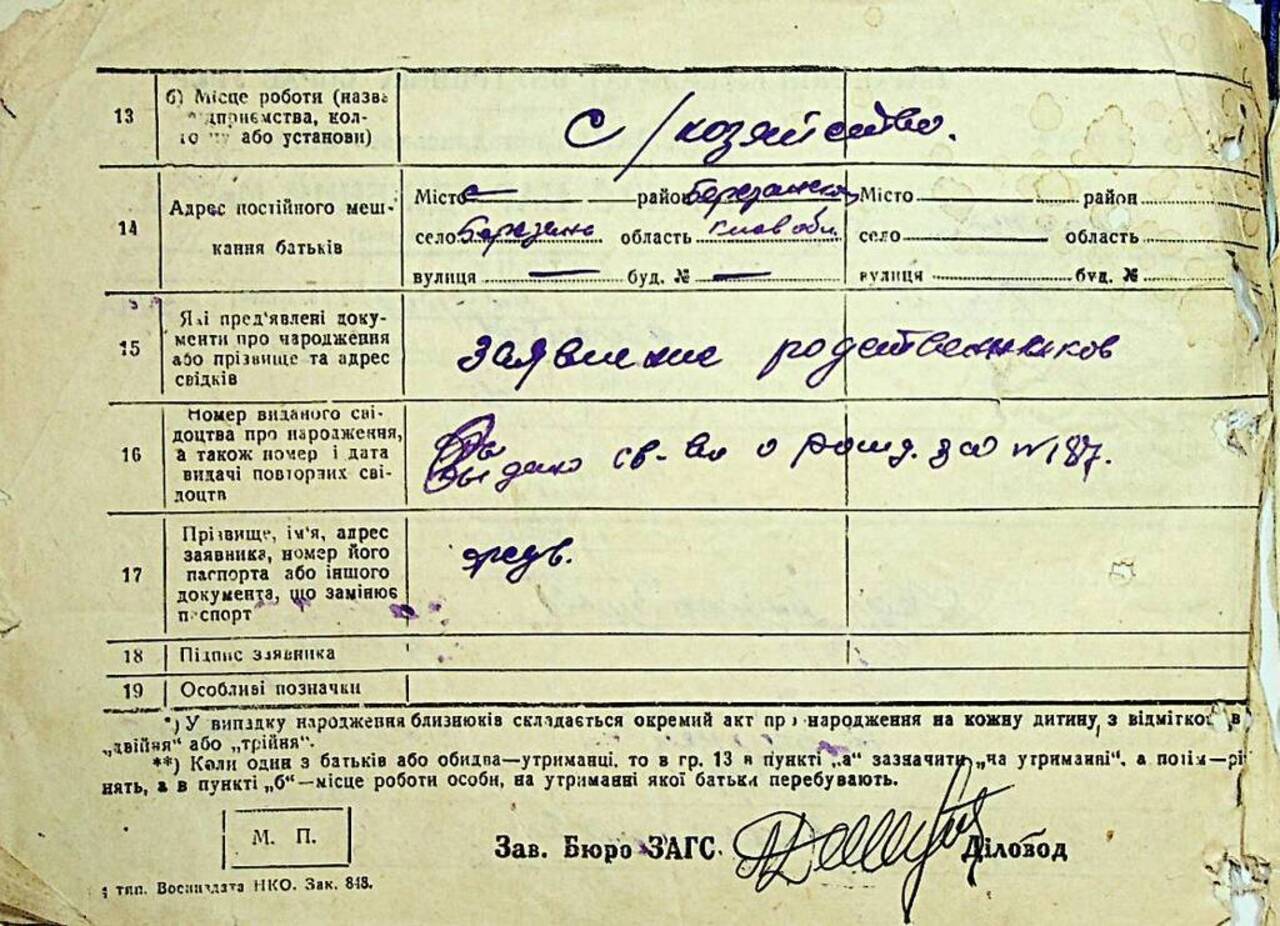 13 б) Місце роботи (назва
підприємства, кол-
го у або установи)
с/хозяйство.
14 Адрес постійного меш-
кання батьків
Місто — район Березанск
село Березань область Киев обл.
вулиця — буд. № —
Місто район
село область
вулиця буд. №
15 Які пред'явлені доку-
менти про народження
або прізвище та адрес
свідків
заявление родственников
16 Номер виданого сві-
доцтва про народження,
а також номер і дата
видачі повторних сві-
доцтв
Выдано св-во о рожд. за №187.
17 Прізвище, ім'я, адрес
заявника, номер його
паспорта або іншого
документа, що замінює
паспорт
18 Підпис заявника
19 Особливі позначки
*) У випадку народження близнюків складається окремий акт про народження на кожну дитину, з відміткою в
„двійня“ або „трійня“.
**) Коли один з батьків або обидва—утриманці, то в гр. 13 в пункті „а“ зазначити „на утриманні“, а потім—рі
нять, а в пункті „б“—місце роботи особи, на утриманні якої батьки перебувають.
М. П.
Зав. Бюро ЗАГС Діловод
тип. Воениздата НКО. Зак. 848.